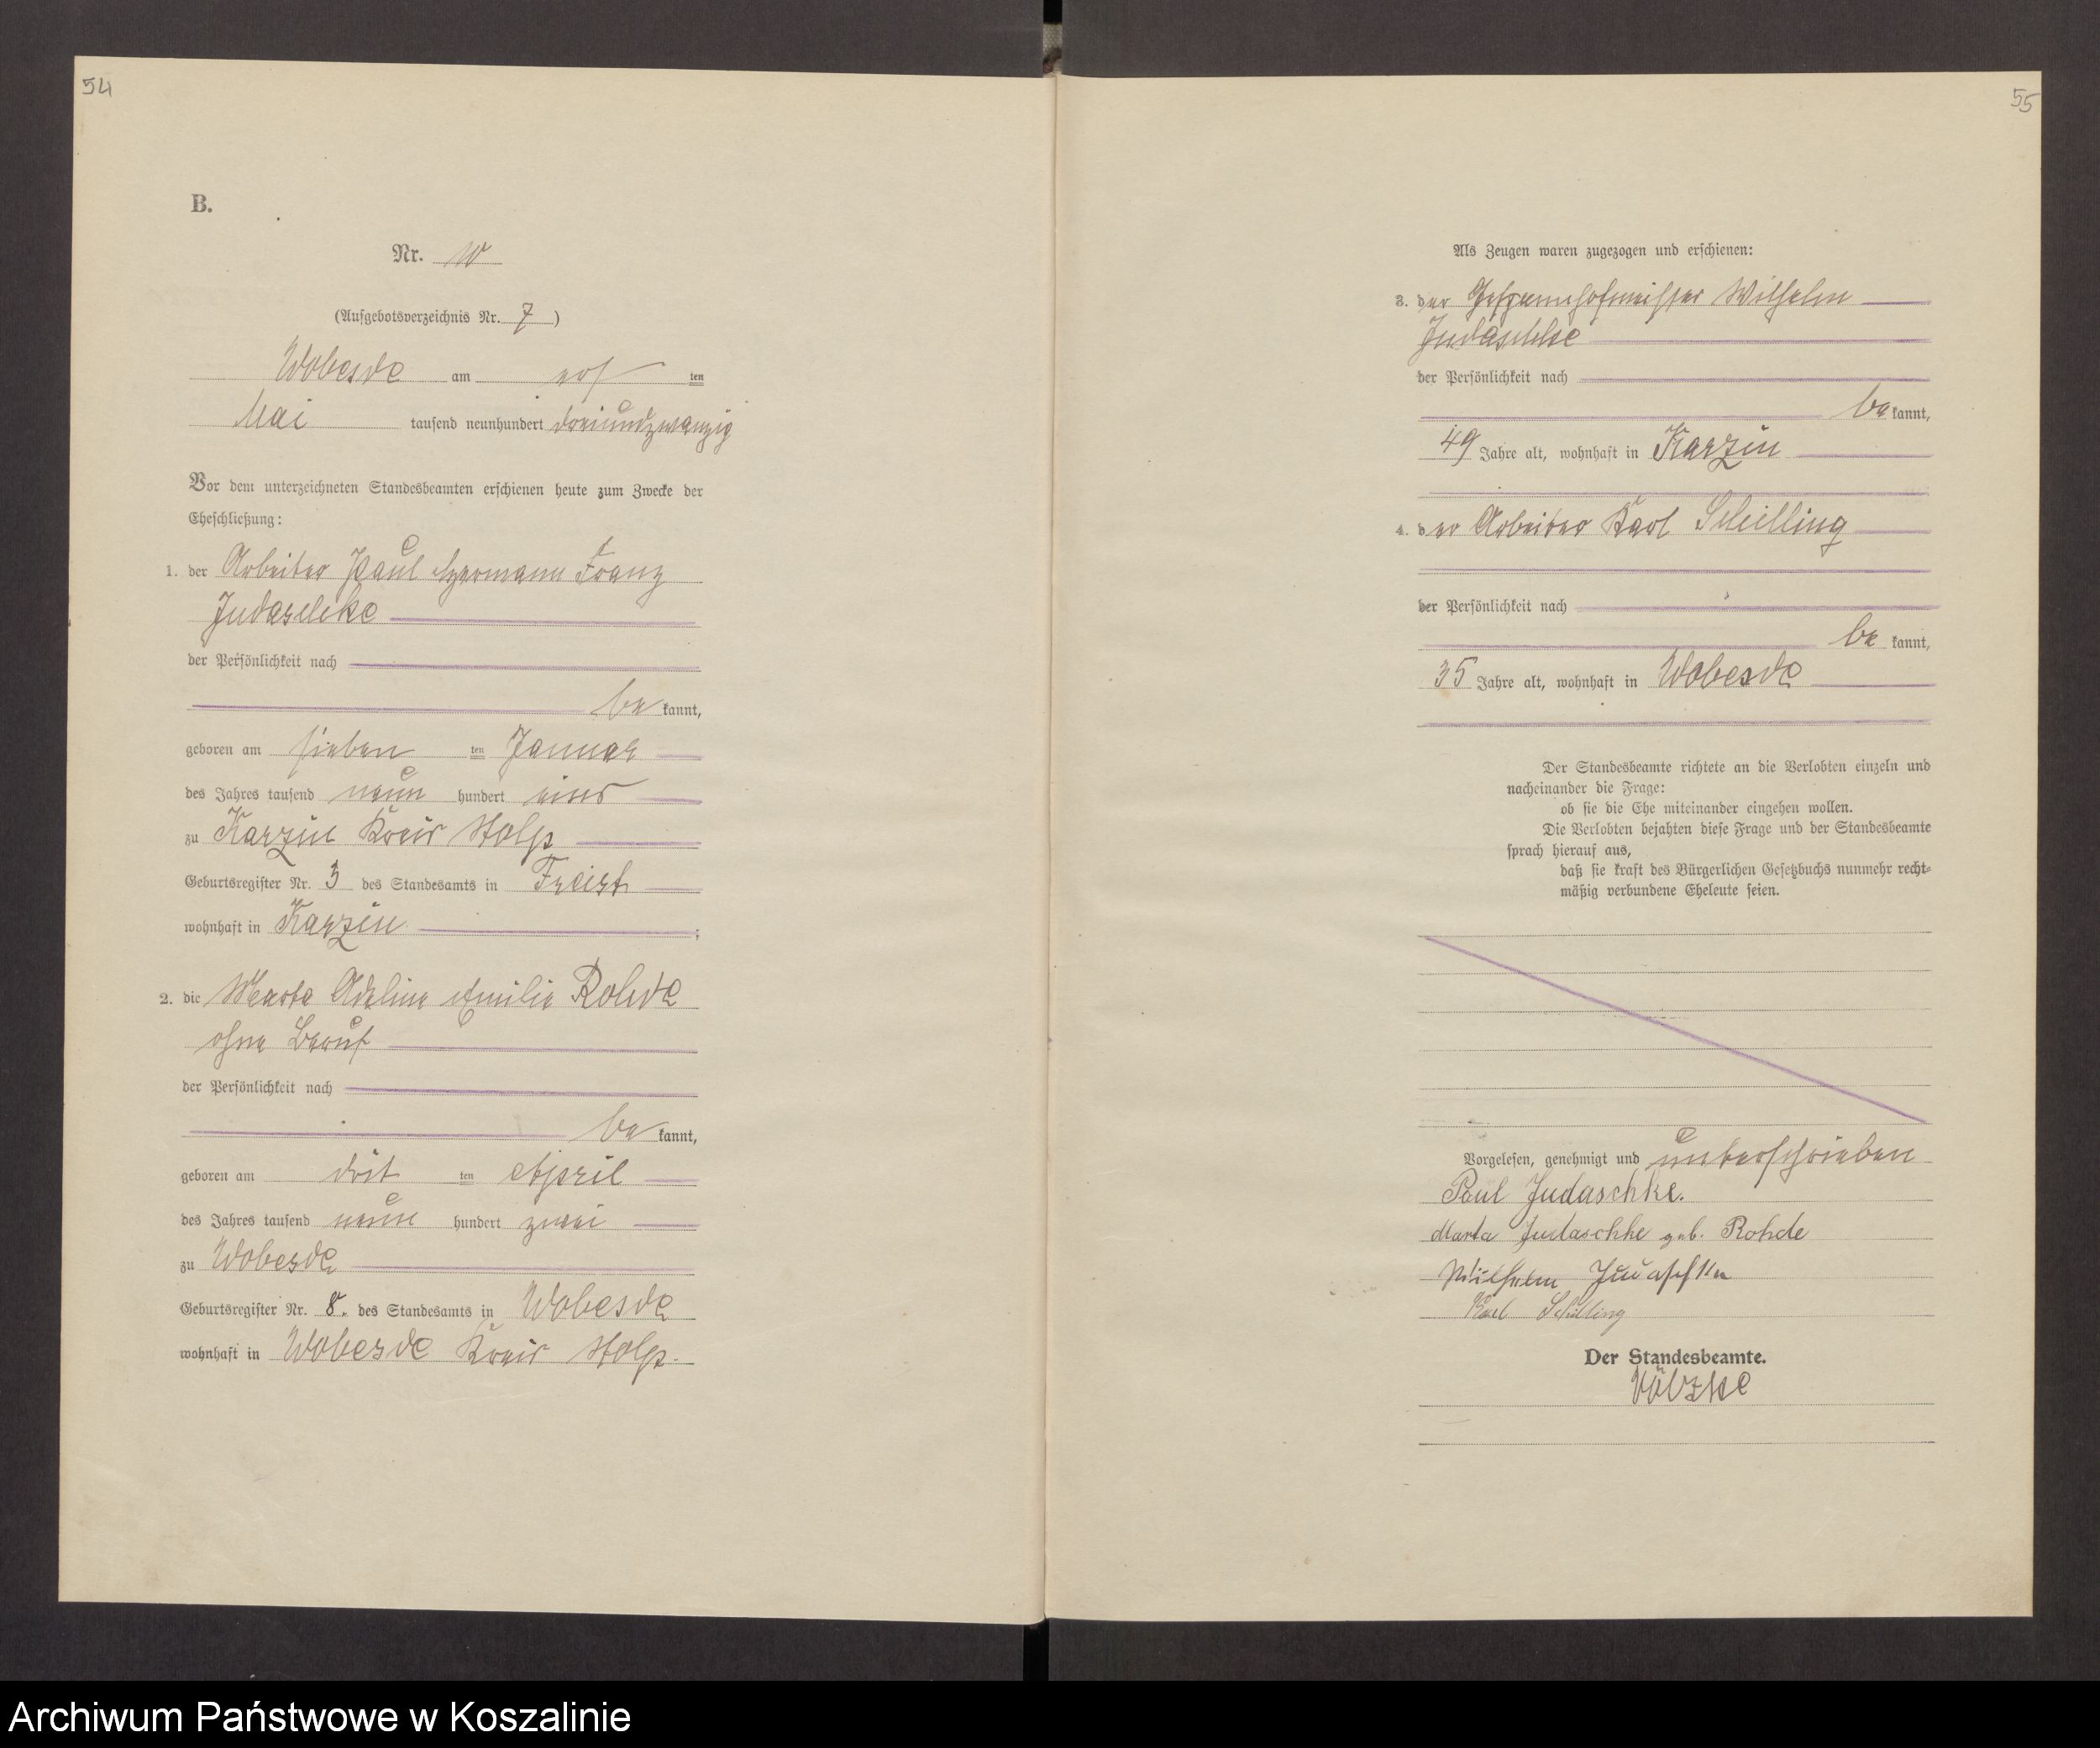 54
B.
Nr. 10
(Aufgebotsverzeichnis Nr. 7)
Wobesde am ten
Mai tausend neunhundert dreiundzwanzig
Vor dem unterzeichneten Standesbeamten erschienen heute zum Zwecke der
Eheschließung:
1. der Arbeiter Paul Hermann Franz
Judaschke
der Persönlichkeit nach
bekannt,
geboren am sieben ten Januar
des Jahres tausend neun hundert eins
zu Karzin Kreis Stolp
Geburtsregister Nr. 3 des Standesamts in Freist
wohnhaft in Karzin ;
2. die Marta Adeline Emilie Rohde
ohne Beruf
der Persönlichkeit nach
bekannt,
geboren am drit ten April
des Jahres tausend neun hundert zwei
zu Wobesde
Geburtsregister Nr. 8. des Standesamts in Wobesde
wohnhaft in Wobesde Kreis Stolp.
55
Als Zeugen waren zugezogen und erschienen:
3. der Gespannhofmeister Wilhelm
Judaschke
der Persönlichkeit nach
bekannt,
49 Jahre alt, wohnhaft in Karzin
4. der Arbeiter Karl Schilling
der Persönlichkeit nach
bekannt,
35 Jahre alt, wohnhaft in Wobesde
Der Standesbeamte richtete an die Verlobten einzeln und
nacheinander die Frage:
ob sie die Ehe miteinander eingehen wollen.
Die Verlobten bejahten diese Frage und der Standesbeamte
sprach hierauf aus,
daß sie kraft des Bürgerlichen Gesetzbuchs nunmehr recht-
mäßig verbundene Eheleute seien.
Vorgelesen, genehmigt und unterschrieben
Paul Judaschke.
Marta Judaschke geb. Rohde
Wilhelm Judaschke
Karl Schilling
Der Standesbeamte.
Völzke
Archiwum Państwowe w Koszalinie